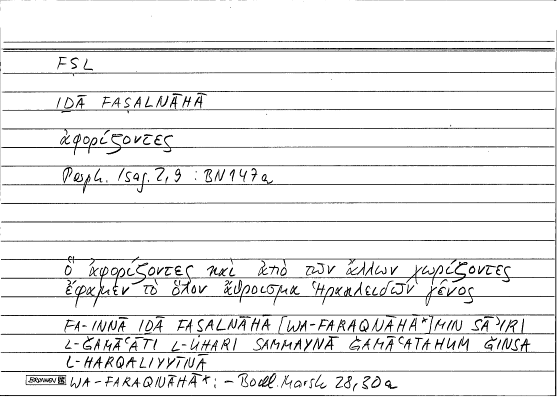 FṢL
IḎĀ FAṢALNĀHĀ
ἀφορίζοντες
Porph. Isag. 2,9 : BN 147a
ὃ ἀφορίζοντες καὶ ἀπὸ τῶν ἄλλων χωρίζοντες
ἔφαμεν τὸ ὅλον ἄθροισμα Ἡρακλειδῶν γένος
FA-INNĀ IḎĀ FAṢALNĀHĀ [WA-FARAQNĀHĀ*] MIN SĀʾIRI
L-ǦAMĀʿĀTI L-UḪARI SAMMAYNĀ ǦAMĀʿATAHUM ǦINSA
L-HARQALIYYĪNA
WA-FARAQNĀHĀ*: – Bodl. Marsh 28,30a